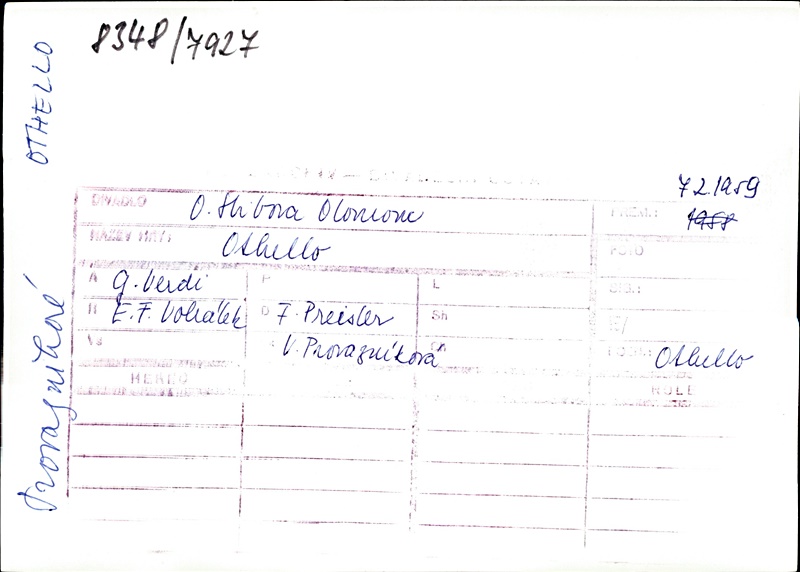 8348/7927
OTHELLO
Provazníkové
7.2.1959
1958
DIVADLO O. Stibora Olomouc
PREM.:
NÁZEV HRY: Othello
FOTO
A G. Verdi P L
SIG.:
R E. F. Vokálek D F. Preisler Sh
Vs V. Provazníková Ch
POZN. Othello
HEREC ROLE